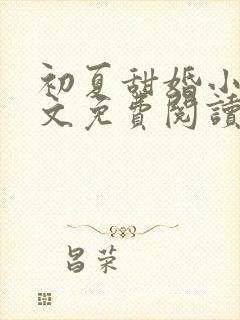 初夏甜婚小
文免費閱讀
昌荣